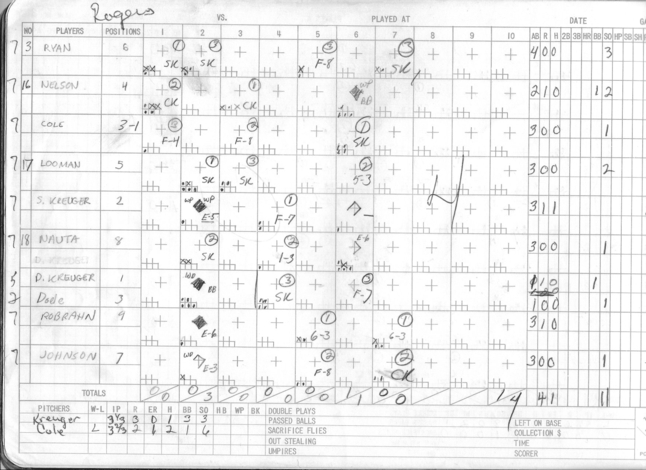 Rogers VS. PLAYED AT DATE
NO PLAYERS POSITIONS 1 2 3 4 5 6 7 8 9 10 AB R H 2B 3B HR BB SO HP SB SH
7 3 RYAN 6 1 SK 2 SK 3 F-8 3 SK 4 0 0 3
7 16 NELSON 4 2 CK 1 CK WP BB 2 1 0 1 2
7 COLE 3-1 3 F-4 2 1 SK 3 0 0 1
7 17 LOOMAN 5 1 SK 3 SK 2 5-3 3 0 0 2
7 S. KREUGER 2 WP WP E-5 1 F-7 3 1 1
7 18 NAUTA 8 2 SK 2 1-3 E-6 3 0 0 1
5 D. KREUGER 1 WP BB 3 SK 3 1 0
2 Dode 3 1 0 0 1
7 ROBRAHN 9 E-6 1 6-3 1 6-3 3 1 0
7 JOHNSON 7 WP E-3 2 F-8 2 CK 3 0 0 1
TOTALS 0 0 0 3 0 0 0 0 0 0 1 1 0 0 1 4 4 1 11
PITCHERS W-L IP R ER H BB SO HB WP BK DOUBLE PLAYS
Kreuger 3 0 1 3 3 PASSED BALLS
Cole L 3 2/3 2 1 2 1 6 SACRIFICE FLIES LEFT ON BASE
OUT STEALING COLLECTION $
UMPIRES TIME
SCORER